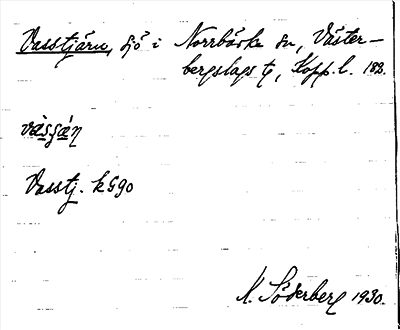 Vasstjärn, sjö i Norrbärke sn, Väster-
bergslags tg, Kopp. l. 1882.
Vasstj. k 590
K. Söderberg 1930.